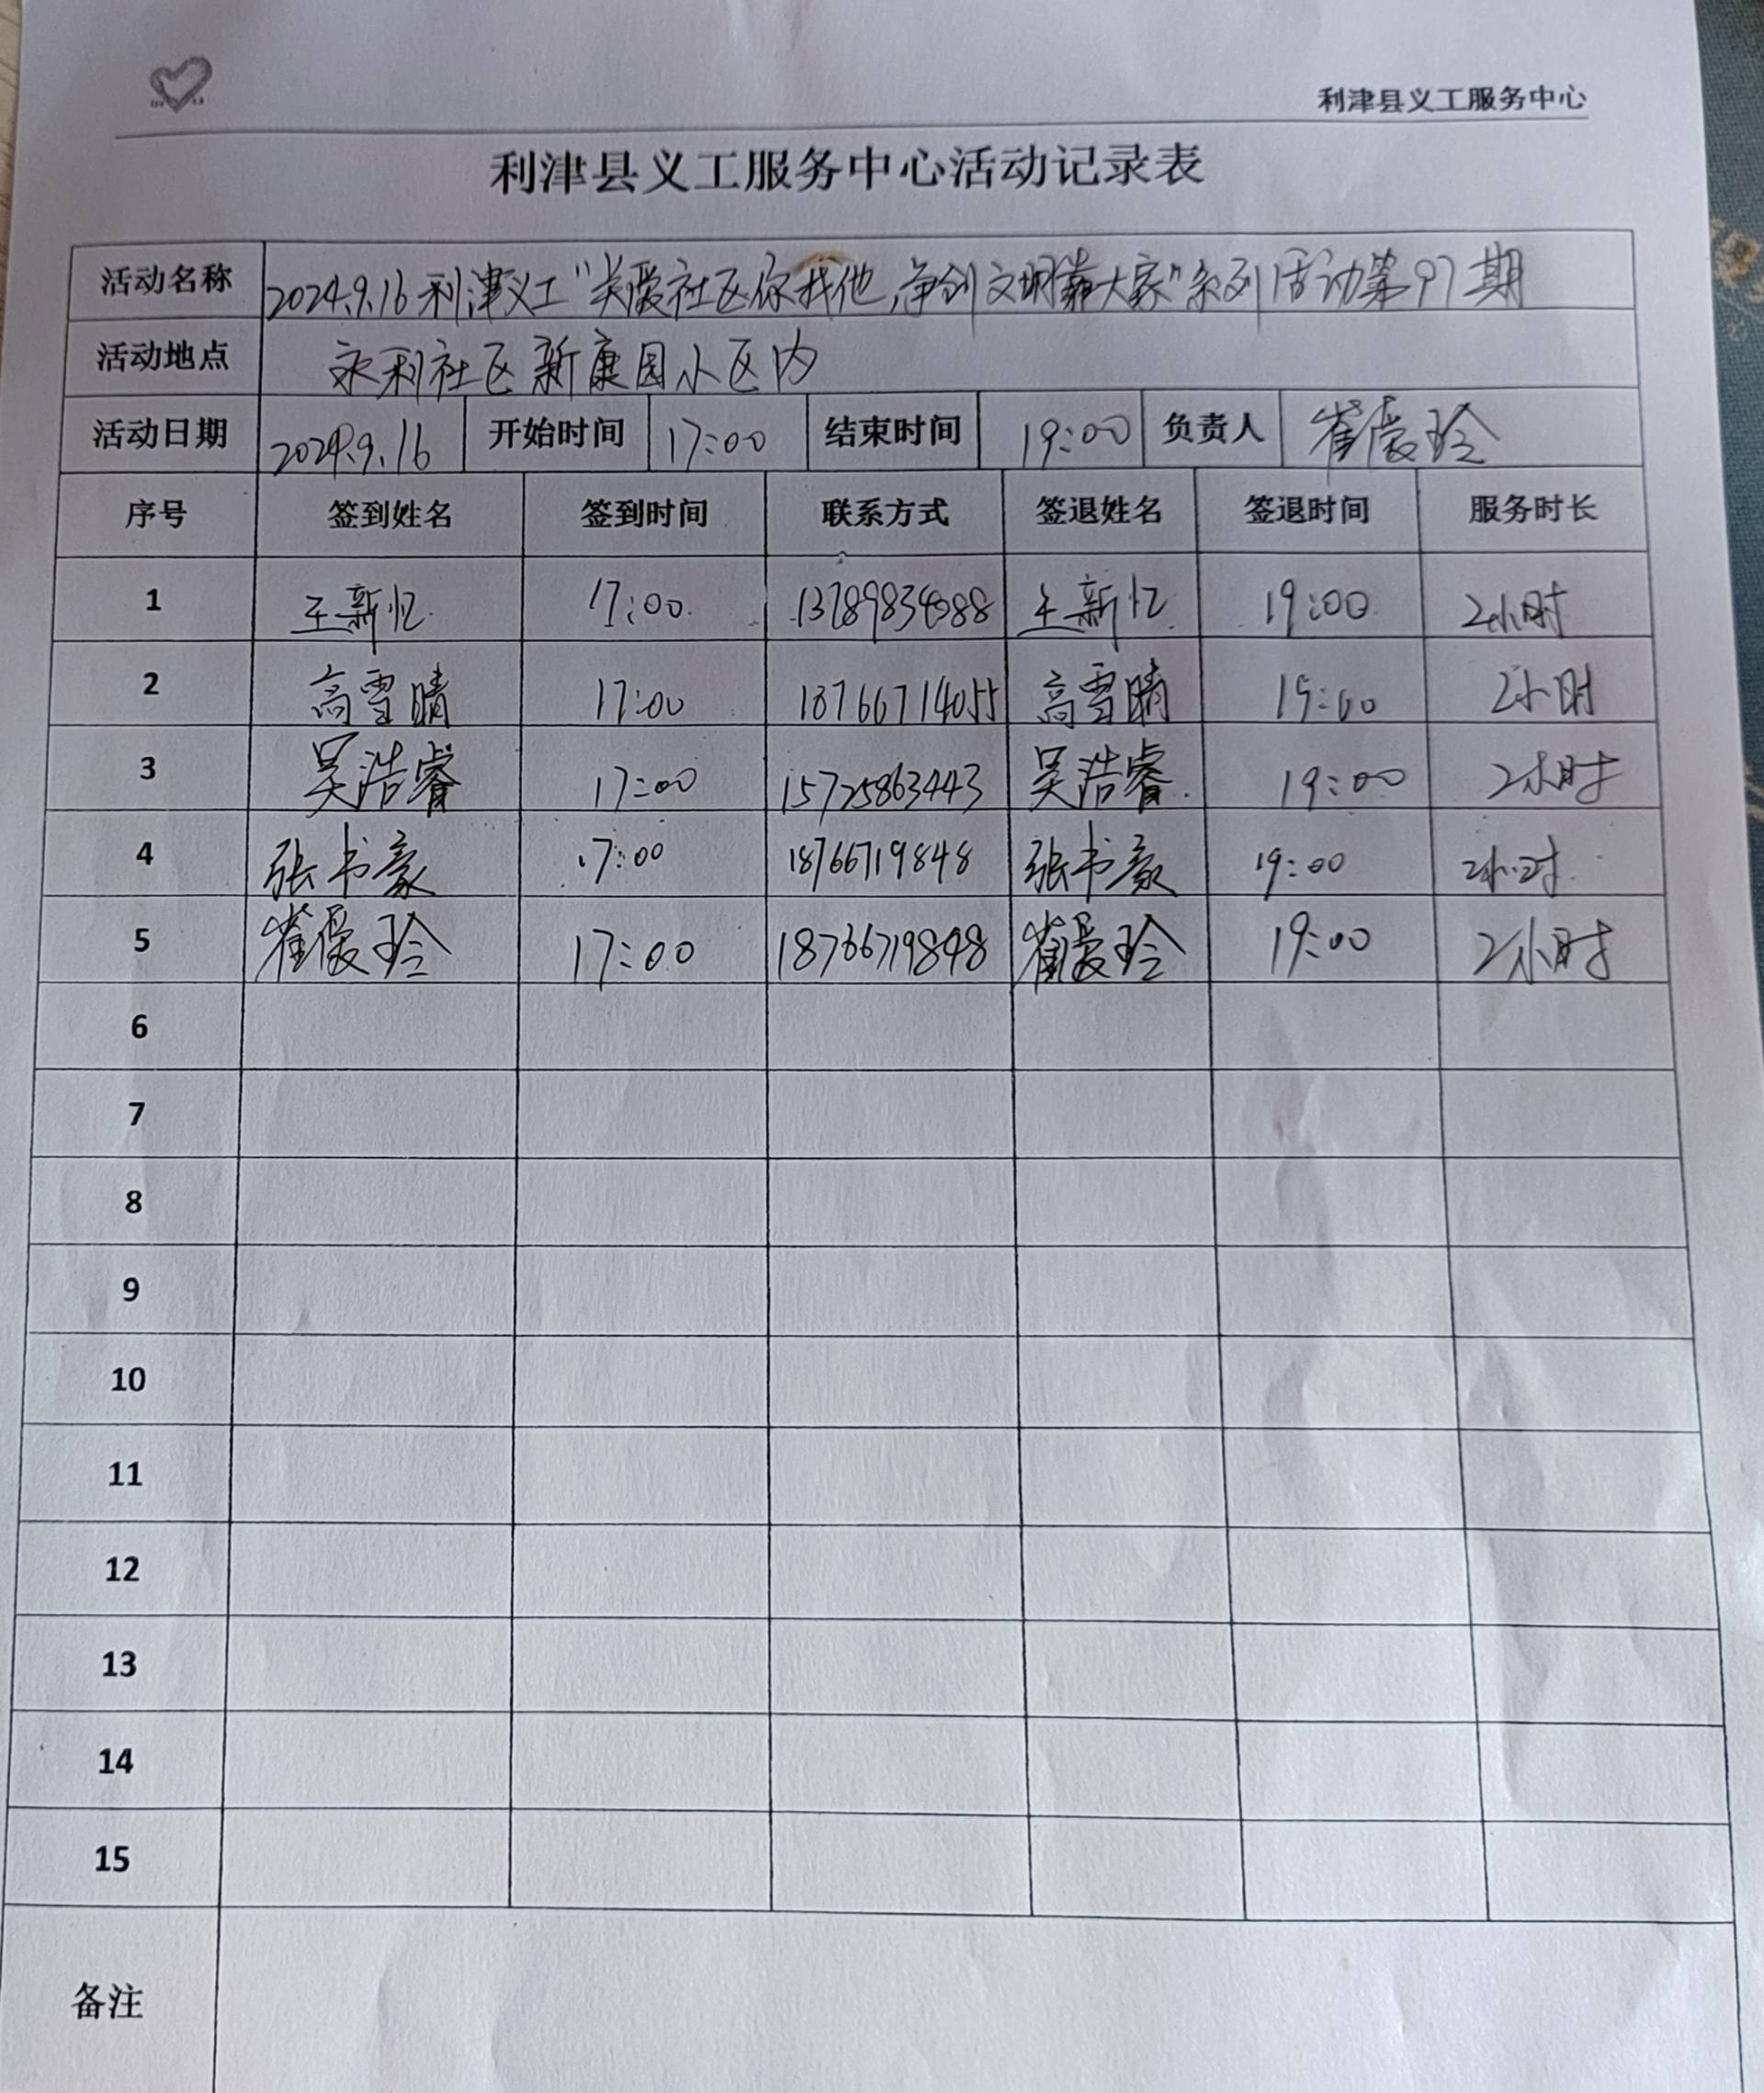 利津县义工服务中心
利津县义工服务中心活动记录表
活动名称 2024.9.16利津义工“关爱社区你我他,争创文明靠大家”系列活动第97期
活动地点 永利社区新康园小区内
活动日期 2024.9.16 开始时间 17:00 结束时间 19:00 负责人 崔爱玲
序号 签到姓名 签到时间 联系方式 签退姓名 签退时间 服务时长
1 王新忆 17:00 王新忆 19:00 2小时
2 高雪晴 17:00 18766714055 高雪晴 19:00 2小时
3 吴浩睿 17:00 15725863443 吴浩睿 19:00 2小时
4 张书豪 17:00 18766719848 张书豪 19:00 2小时
5 崔爱玲 17:00 18766719848 崔爱玲 19:00 2小时
6
7
8
9
10
11
12
13
14
15
备注